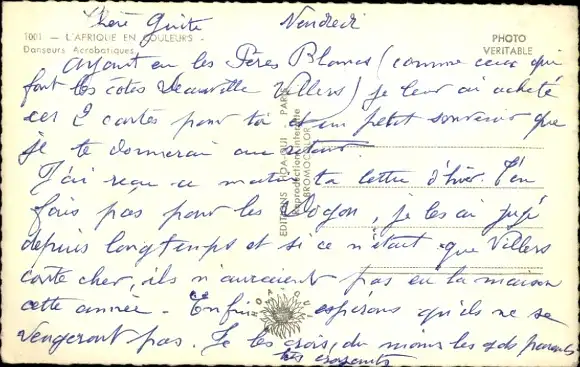 Chère Guite Vendredi
1001 - L'AFRIQUE EN COULEURS -
Danseurs Acrobatiques
PHOTO
VERITABLE
Ayant eu les Pères Blancs (comme ceux qui
font les côtes Deauville Villers) je leur ai acheté
ces 2 cartes pour toi et un petit souvenir que
je te donnerai au retour.
J'ai reçu ce matin ta lettre d'hier. T'en
fais pas pour les Dogon, je les ai jugé
depuis longtemps et si ce n'était que Villers
coûte cher, ils n'auraient pas eu la maison
cette année - Enfin espérons qu'ils ne se
vengeront pas. Je les crois, du moins les gds parents
très croyants
EDITIONS HOA-QUI - PARIS
Reproduction interdite
BROMOCOLOR
HOA QUI